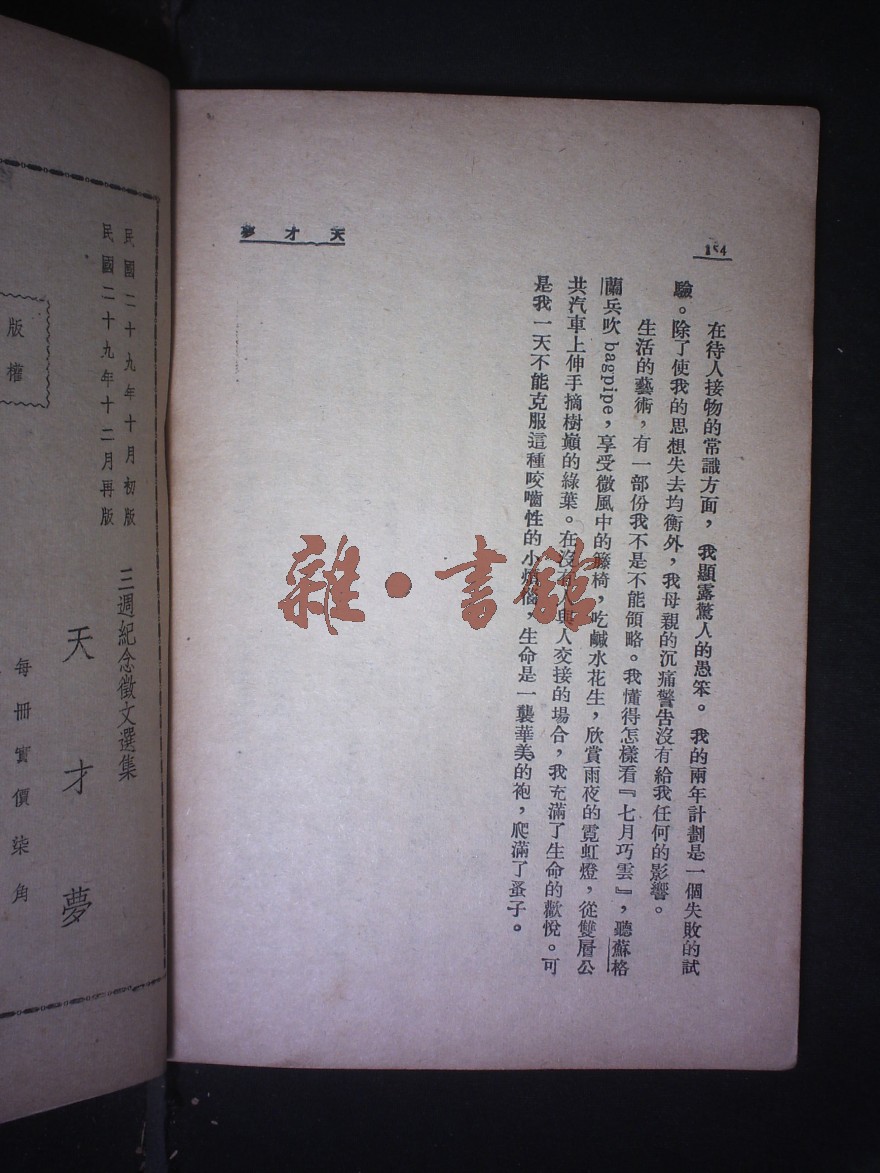 154
天才夢
在待人接物的常識方面，我顯露驚人的愚笨。我的兩年計劃是一個失敗的試
驗。除了使我的思想失去均衡外，我母親的沉痛警告沒有給我任何的影響。
生活的藝術，有一部份我不是不能領略。我懂得怎樣看『七月巧雲』，聽蘇格
蘭兵吹bagpipe，享受微風中的籐椅，吃鹹水花生，欣賞雨夜的霓虹燈，從雙層公
共汽車上伸手摘樹巔的綠葉。在沒有人與人交接的場合，我充滿了生命的歡悅。可
是我一天不能克服這種咬嚙性的小煩惱，生命是一襲華美的袍，爬滿了蚤子。
雜·書館
民國二十九年十月初版
民國二十九年十二月再版
三週紀念徵文選集
天才夢
每冊實價柒角
版權